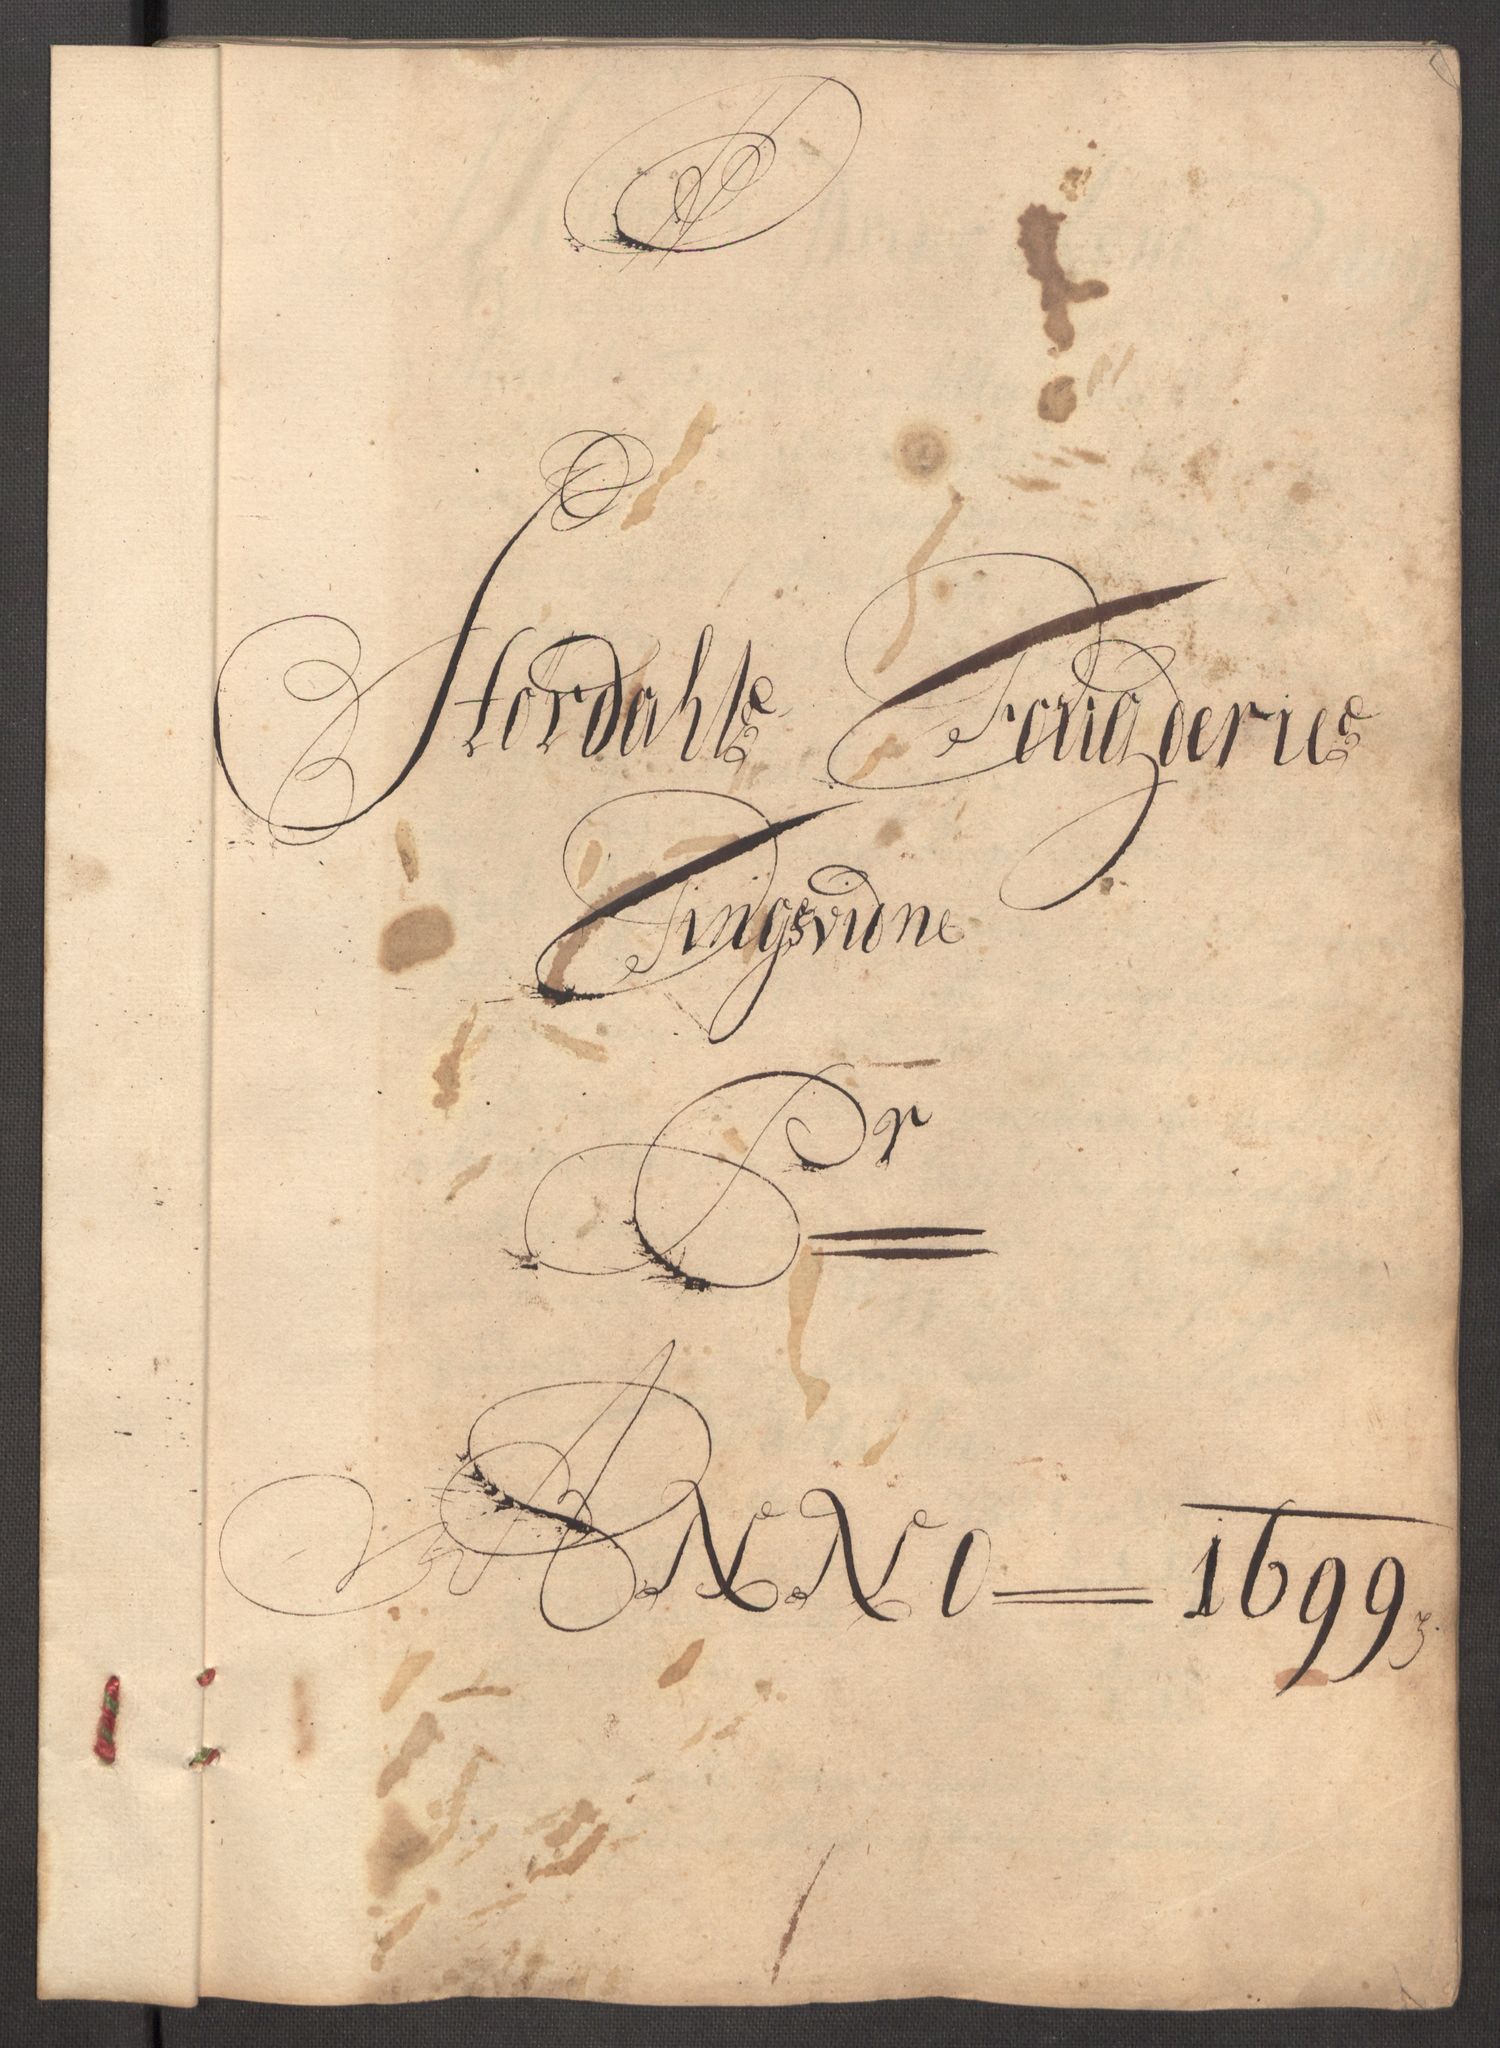 Stordahls Fougderies
Tingsvidne
Pr
ANNO 1699